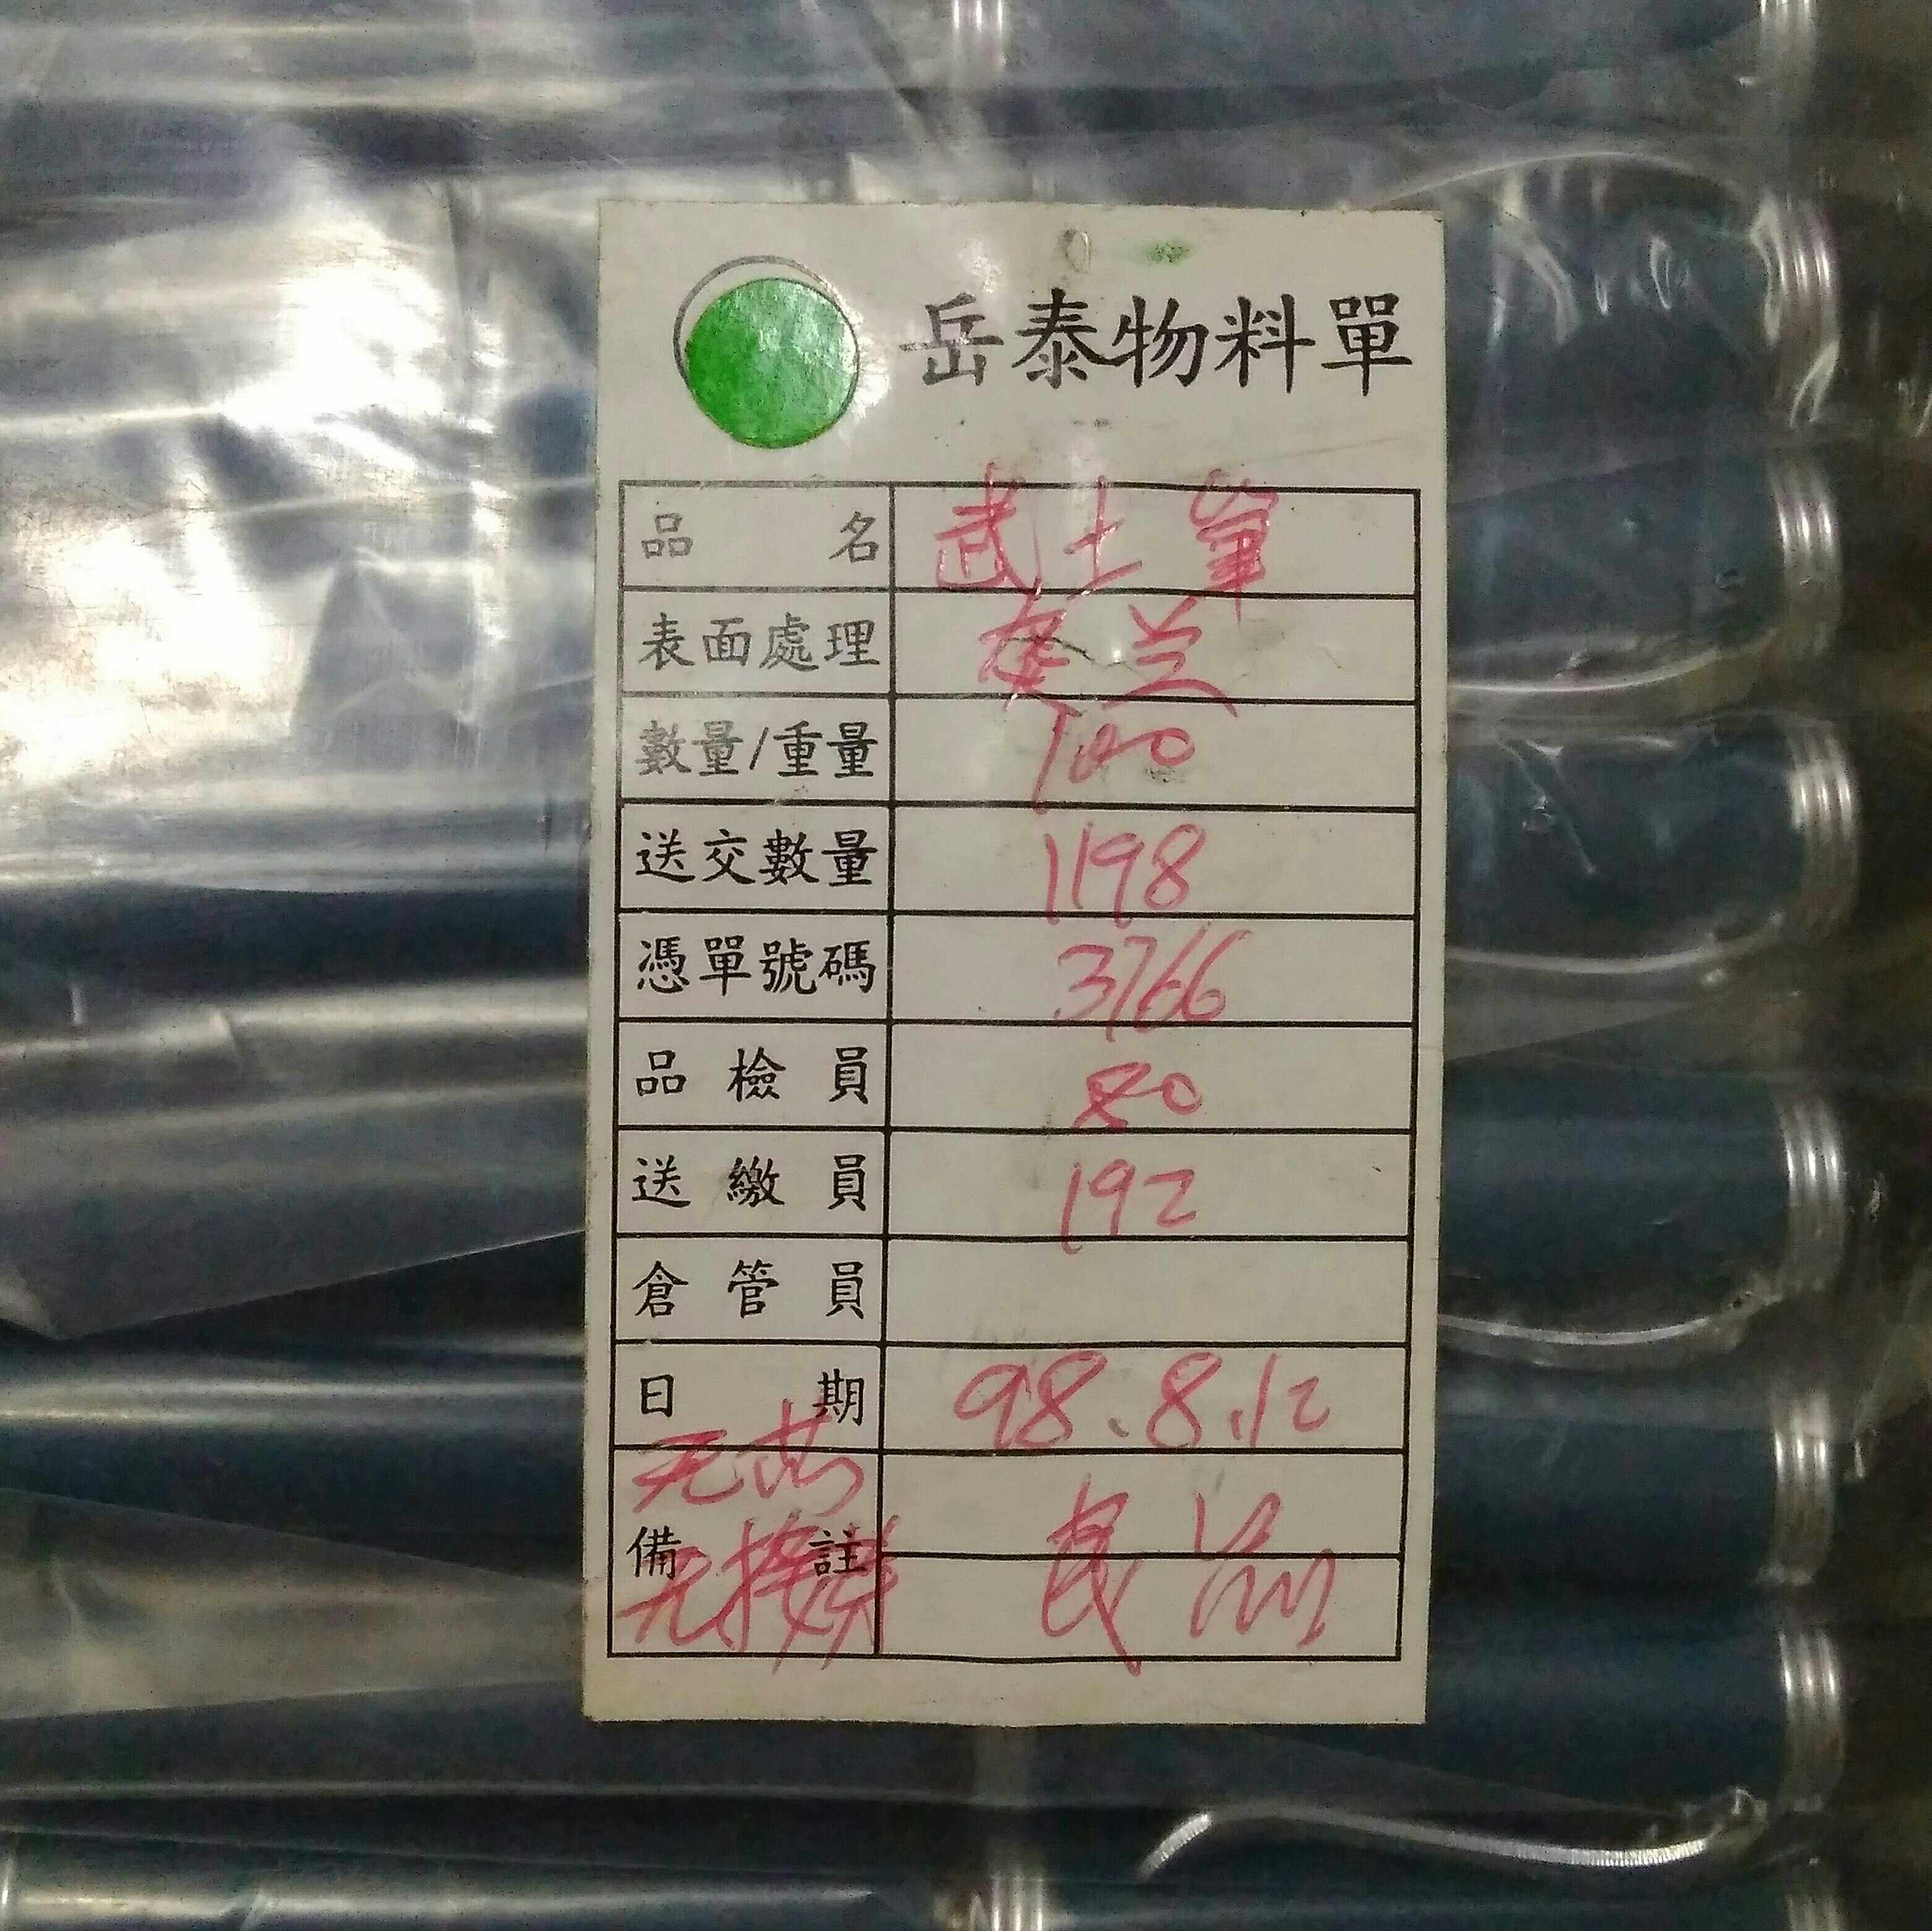 岳泰物料單
品名 武士筆
表面處理
數量/重量 100
送交數量 1198
憑單號碼 3766
品檢員 80
送繳員 192
倉管員
日期 98.8.12
无芯
備註 良品
无接拼